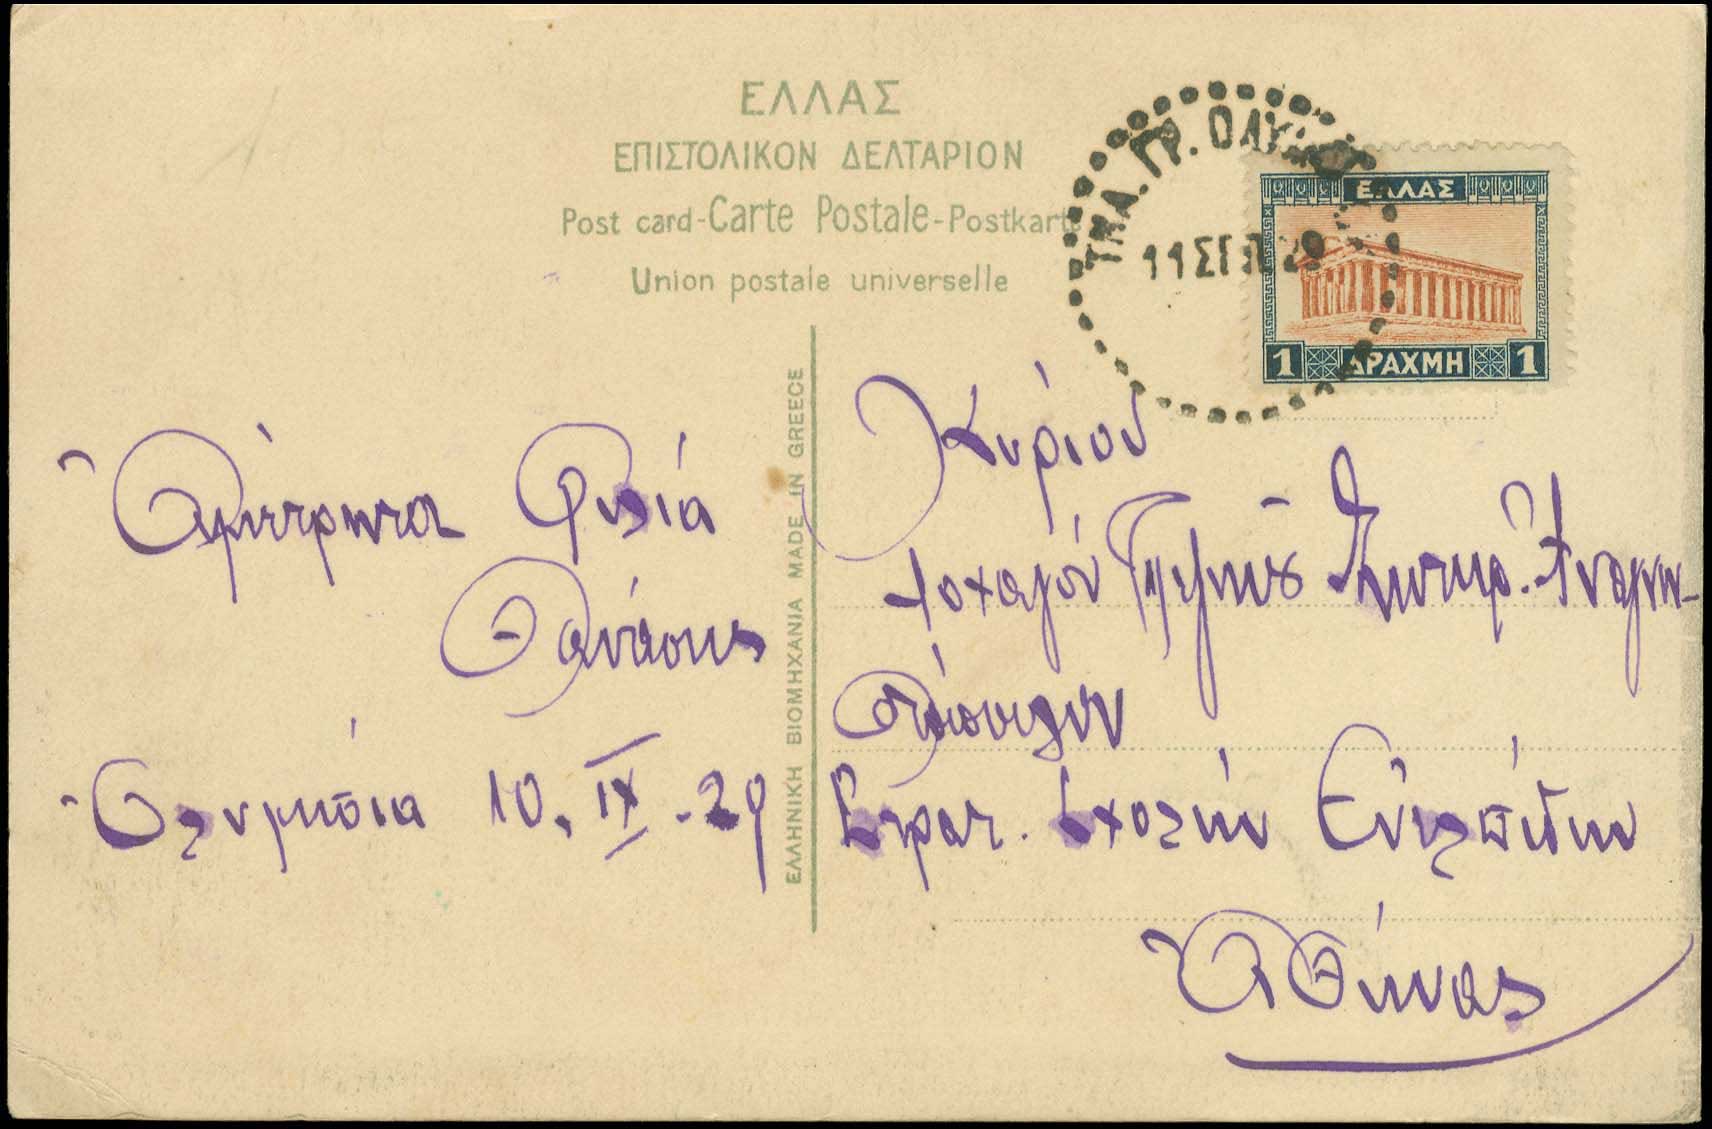 ΕΛΛΑΣ
ΕΠΙΣΤΟΛΙΚΟΝ ΔΕΛΤΑΡΙΟΝ
Post card-Carte Postale-Postkarte
Union postale universelle
ΤΜΑ. ΓΡ.
11 ΣΕΠ 29
ΕΛΛΑΣ
1 ΔΡΑΧΜΗ 1
ΕΛΛΗΝΙΚΗ ΒΙΟΜΗΧΑΝΙΑ MADE IN GREECE
Ἀμέτρητα Φιλιά
Θανάσης
Ὀλυμπία 10. IX -29
Κύριον
Λοχαγόν
Στρατ. Σχολήν Εὐελπίδων
Ἀθήνας